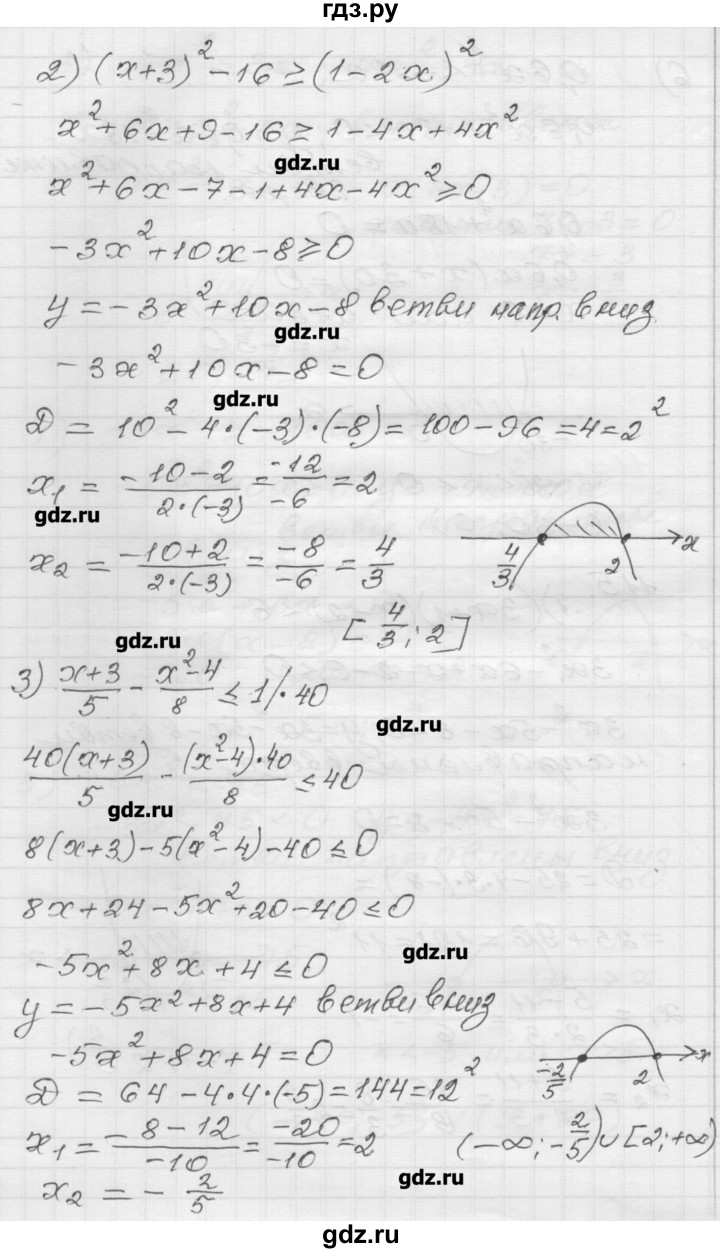 гдз.ру
2) (x+3)² - 16 ≥ (1 - 2x)²
x² + 6x + 9 - 16 ≥ 1 - 4x + 4x²
gdz.ru
x² + 6x - 7 - 1 + 4x - 4x² ≥ 0
- 3x² + 10x - 8 ≥ 0
y = - 3x² + 10x - 8 ветви напр. вниз.
gdz.ru
- 3x² + 10x - 8 = 0
gdz.ru
D = 10² - 4·(-3)·(-8) = 100 - 96 = 4 = 2²
x₁ = (-10 - 2)/(2·(-3)) = -12/-6 = 2
gdz.ru
x₂ = (-10 + 2)/(2·(-3)) = -8/-6 = 4/3
4/3 2 x
[4/3; 2]
gdz.ru
3) (x+3)/5 - (x² - 4)/8 ≤ 1 /·40
gdz.ru
40(x+3)/5 - (x² - 4)·40/8 ≤ 40
gdz.ru
8(x+3) - 5(x² - 4) - 40 ≤ 0
8x + 24 - 5x² + 20 - 40 ≤ 0
- 5x² + 8x + 4 ≤ 0
gdz.ru
y = - 5x² + 8x + 4 ветви вниз
- 5x² + 8x + 4 = 0
-2/5 2 x
D = 64 - 4·4·(-5) = 144 = 12²
x₁ = (-8 - 12)/-10 = -20/-10 = 2
(-∞; -2/5) ∪ [2; +∞)
x₂ = - 2/5
gdz.ru
gdz.ru